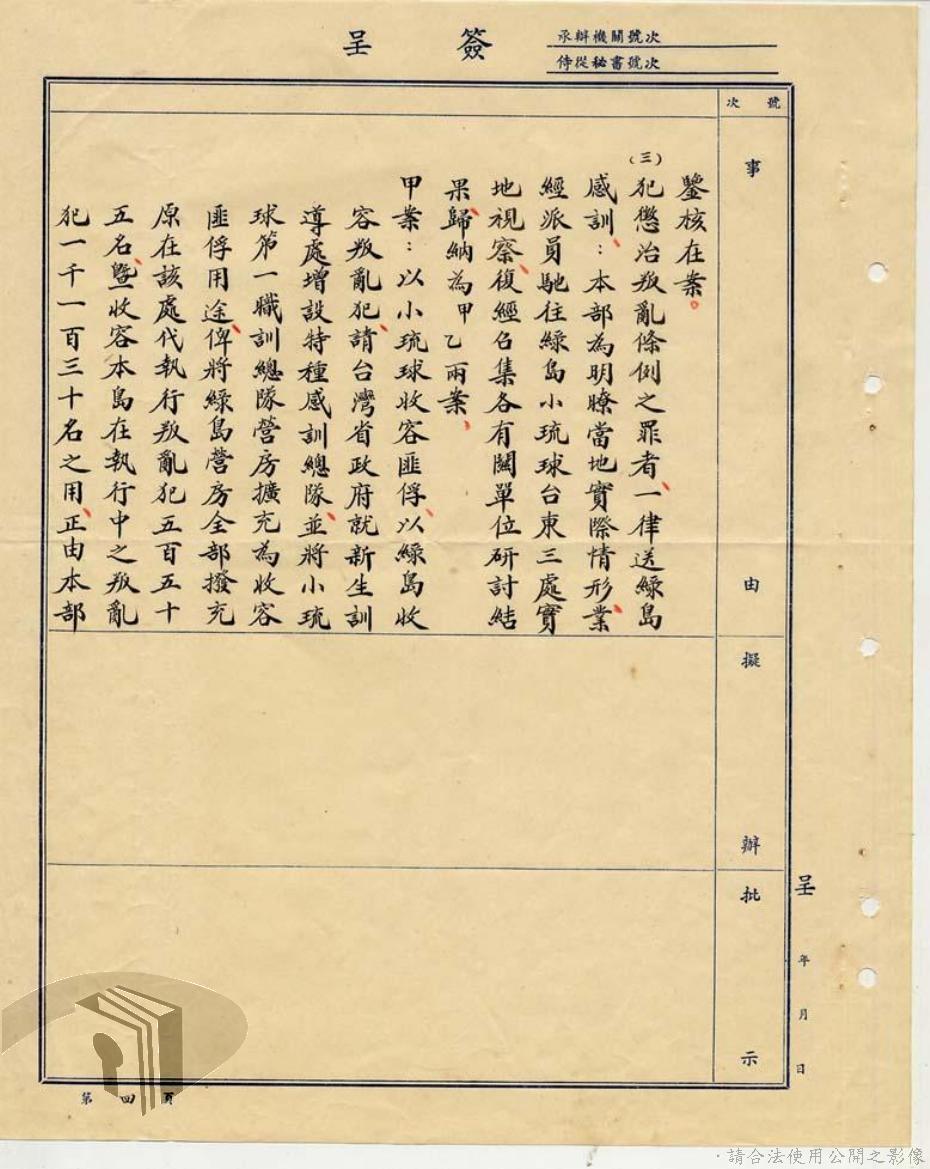 簽呈
承辦機關號次
侍從秘書號次
號次
事由
鑒核在案。
(三)犯懲治叛亂條例之罪者、一律送綠島
感訓:本部為明瞭當地實際情形、業
經派員馳往綠島小琉球台東三處實
地視察、復經召集各有關單位研討結
果、歸納為甲乙兩案、
甲案:以小琉球收容匪俘、以綠島收
容叛亂犯、請台灣省政府就新生訓
導處增設特種感訓總隊、並將小琉
球第一職訓總隊營房擴充為收容
匪俘用途、俾將綠島營房全部撥充
原在該處代執行叛亂犯五百五十
五名、暨收容本島在執行中之叛亂
犯一千一百三十名之用、正由本部
擬辦
批示
呈 年 月 日
第四頁
·請合法使用公開之影像